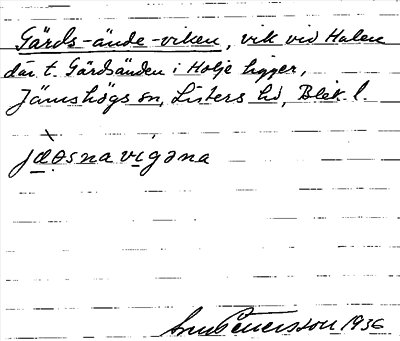 Gärds-ände-viken, vik vid Halen
där t. Gärdsänden i Holje ligger,
Jämshögs sn, Listers hd, Blek. l.
jæəsnavigəna
Pettersson 1936